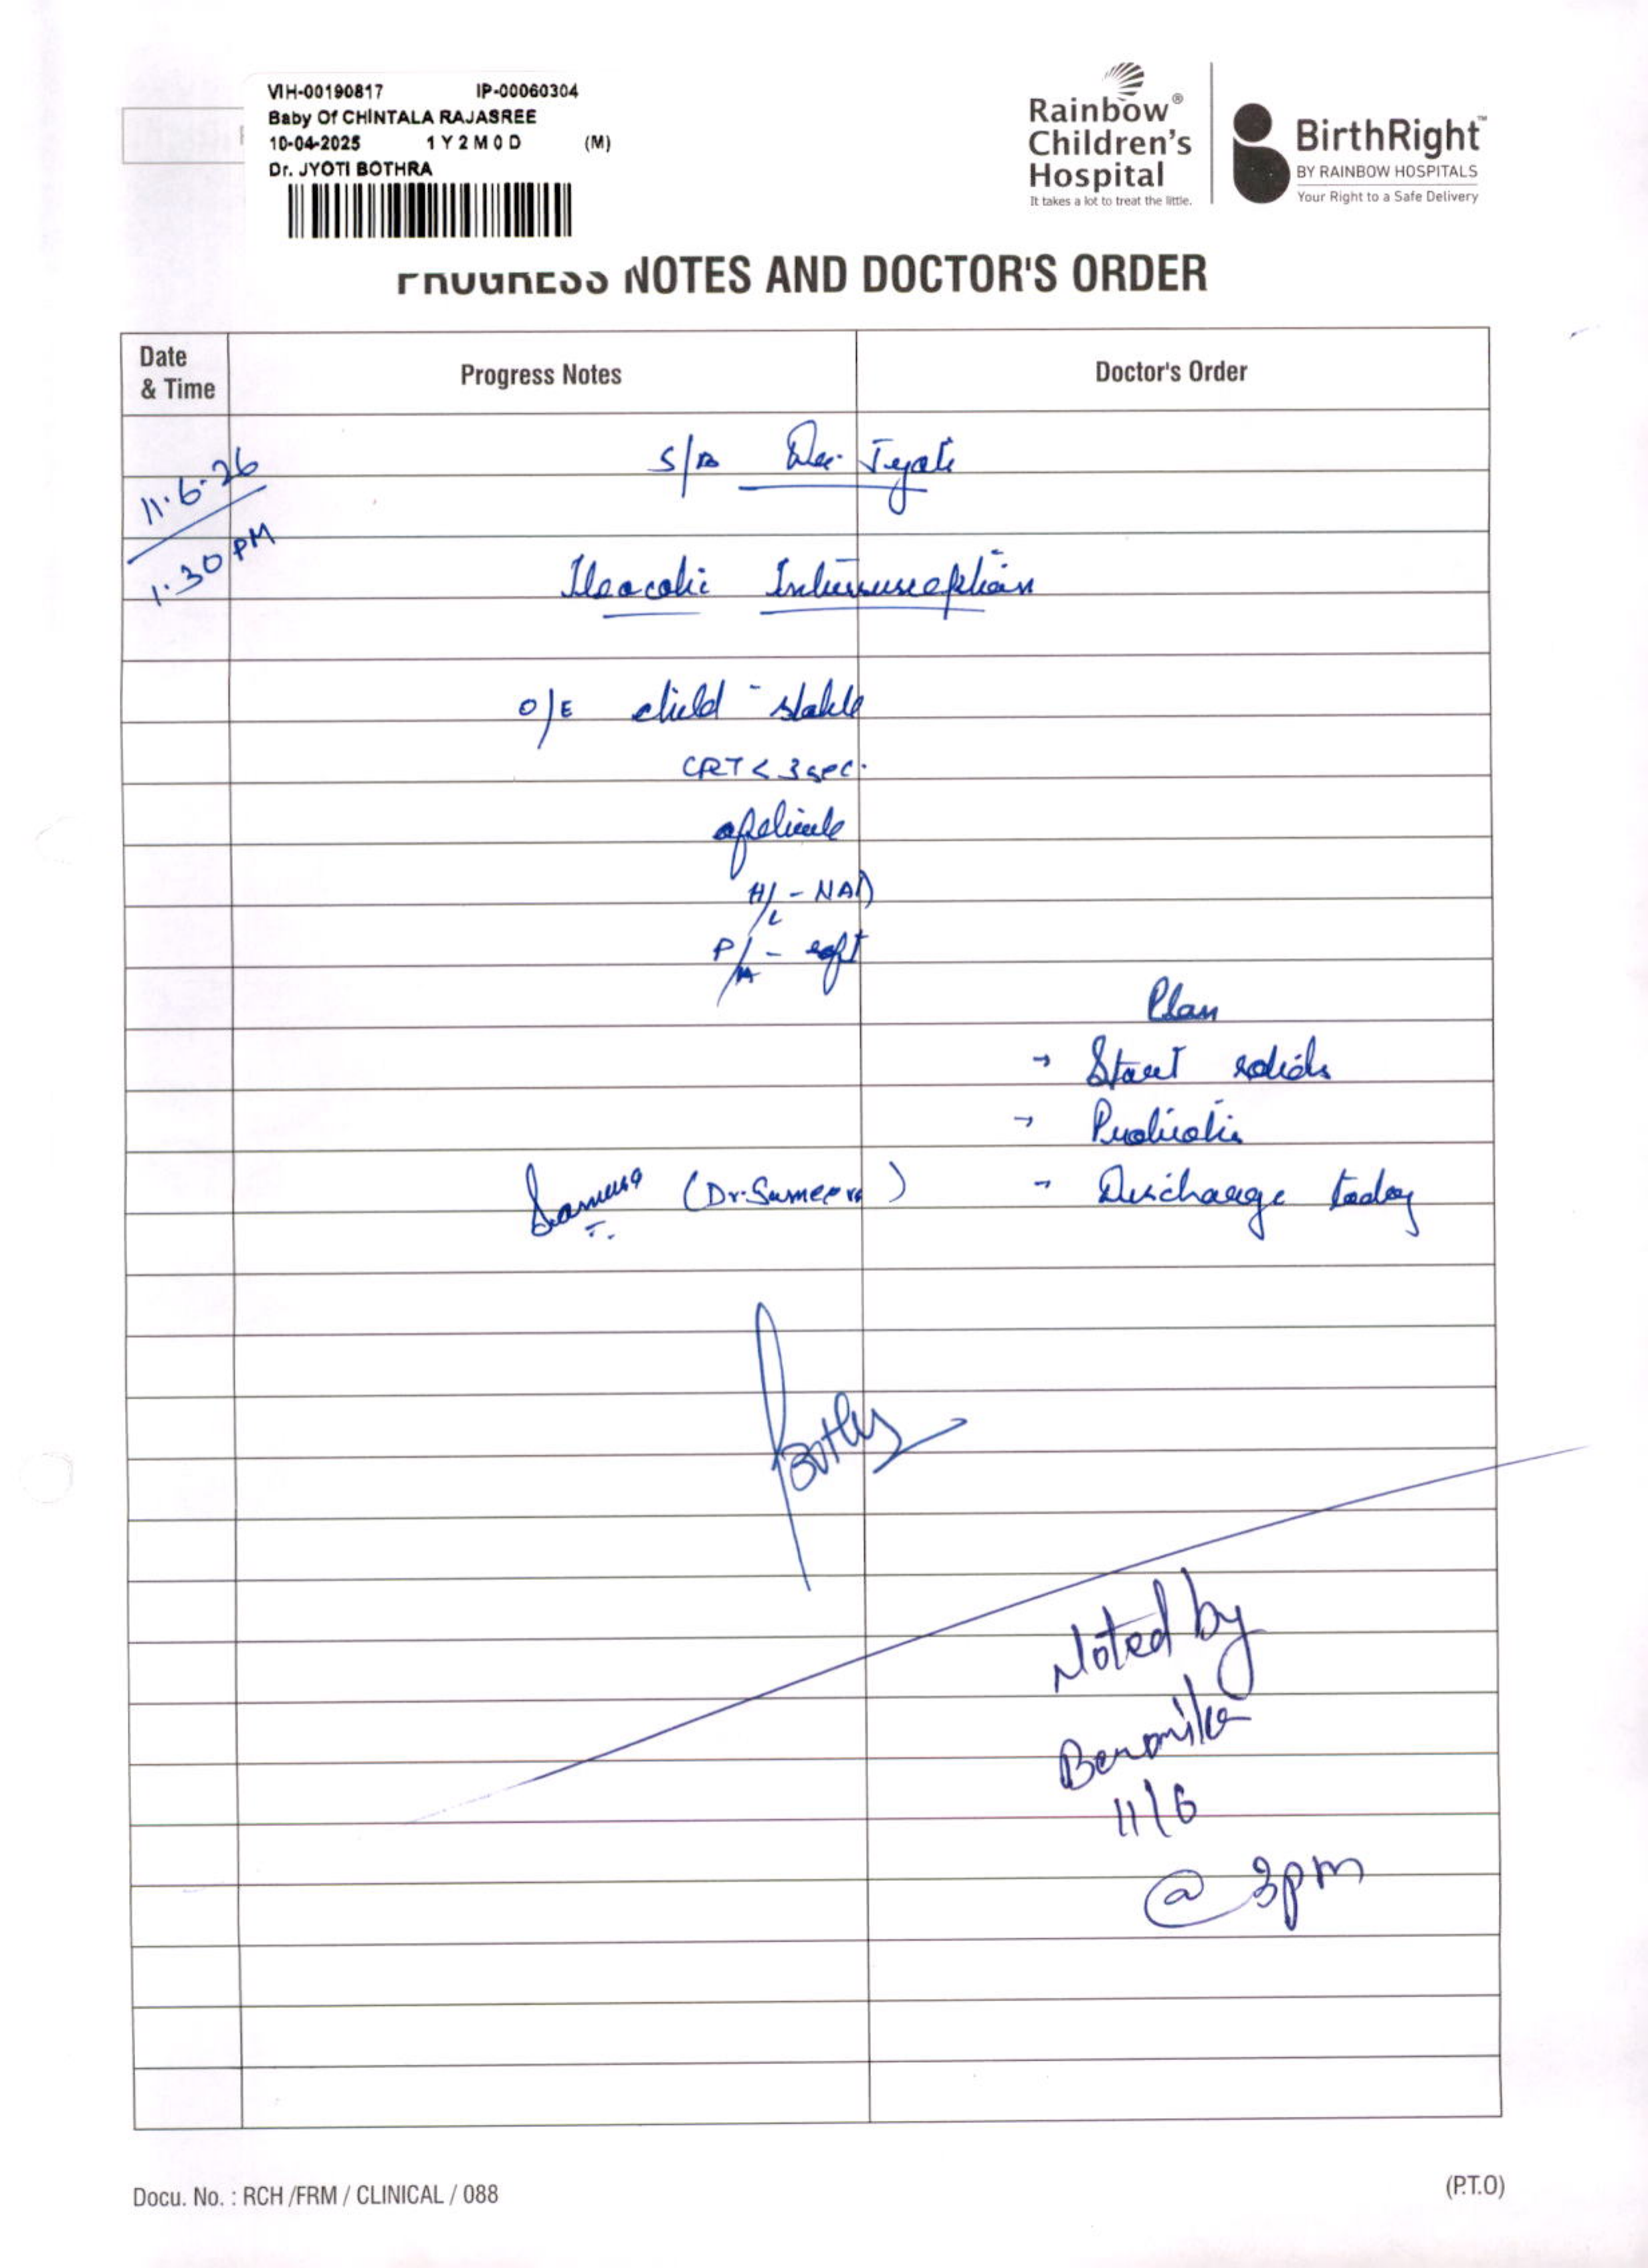 VIH-00190817 IP-00060304
Baby Of CHINTALA RAJASREE
10-04-2025 1Y2M0D (M)
Dr. JYOTI BOTHRA
Rainbow®
Children's
Hospital
It takes a lot to treat the little.
BirthRight™
BY RAINBOW HOSPITALS
Your Right to a Safe Delivery
PROGRESS NOTES AND DOCTOR'S ORDER
Date
& Time
Progress Notes
Doctor's Order
11.6.26
1.30 PM
S/B Dr. Jyoti
Ileocolic Intussusception
O/E child - stable
CRT < 3 sec.
afebrile
H/L - NAD
P/A - soft
Plan
→ Start solids
→
(Dr. Sumeera)
- Discharge today
Noted by
11/6
@ 3pm
Docu. No. : RCH /FRM / CLINICAL / 088
(P.T.O)